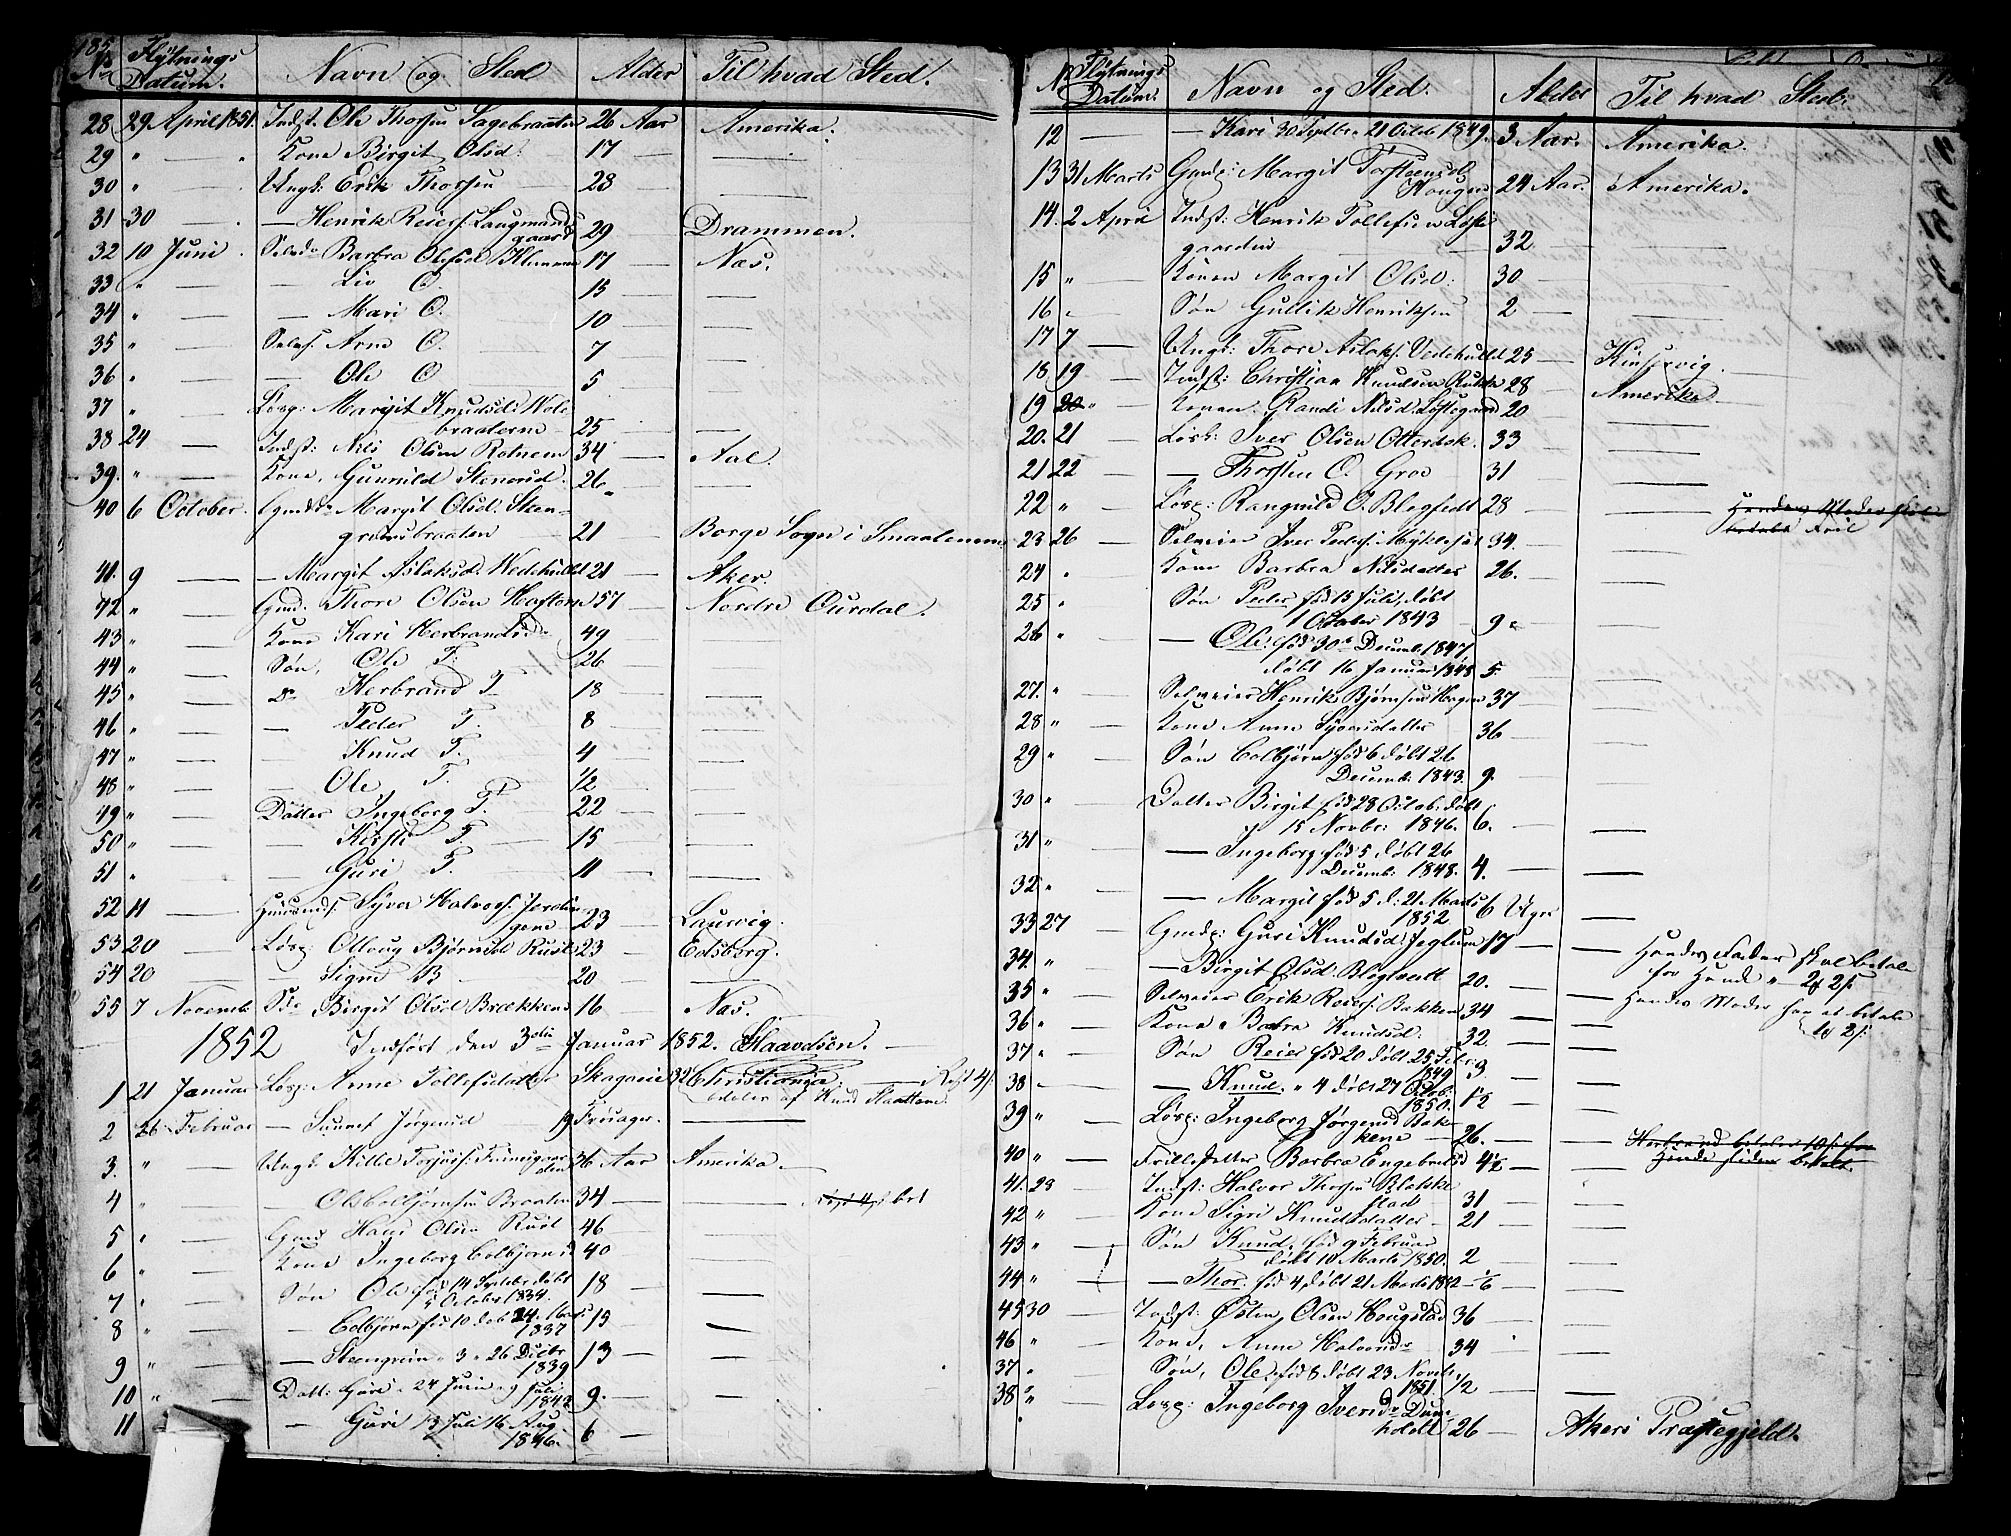 185
No Flÿtnings Datum. Navn og Sted Alder Til hvad Sted.
28 29 April 1851. Indst. Ole Thorsen Sagebraaten 26 Aar Amerika.
29 " Kone Birgit Olsd. 17 — —
30 " Ungk. Erik Thorsen 28 —
31 30 — Henrik Reiers. Laugmands
gaard 29 Drammen.
32 10 Juni Barbra Olsd. Klemmen 17 — Næs.
33 " — Liv O. 15 — —
34 " — Mari O. 10 — —
35 " — Arne O. 7 — —
36 " — Ole O 5 — —
37 " — Løsp: Margit Knudsd:
braatene 25 — —
38 24 — Indst: Nils Olsen Rotnem 34 — Aal.
39. " — Kone, Gunnild Stensrud 26 " —
40 6 October. Margit Olsd. Sten-
grimsbraaten 21 Borge Sogn i Smaalenene
41. 9 — — Margit Aslaksd. Wedehullet 21 — Aker.
42 " — Gmd. Thore Olsen Haftorn 57 — Nordre Ourdal.
43 " — Kone Kari Herbrandsd. 49
44 " — Søn, Ole T. 26 —
45 " — Do Herbrand T 18 — —
46 " — — Peder T. 8 — —
47 " — Knud T. 4 — —
48 " — Ole T. 1/2 — —
49 " — Datter Ingeborg T. 22 — —
50 " — — Kirsti T. 15 — —
51 " — — Guri T. 11 — —
52 11 — Syver Halvors.
23 — Laurvig.
53 20 — Løsp: Ollaug Bjørnsd Rust 23 — Edsberg.
54 20 — — Signe B — 20 — —
55 7 Novemb Birgit Olsd Brækken 16 Næs.
1852 Indført den 3die Januar 1852. Flaavdsen. —
1 21 Januar Løsp: Anne Tollefsdatter Skagaeie 32 Christiania. — Rest 4
betales af Knud Slaatten.
2 26 Februar — Sunnet Jørgensd 19 Frouager. —
3. " — Ungk. Killil Torjus. 36 Aar Amerika. —
4 — — Ole Colbjørnsen Braaten 34 — — Rest 4 brt
5 " — Gmd Hans Olsen Rust 46
6 " — Kone Ingeborg Colbjørnsd 40 —
7 " — Søn Ole fød 14 Septebr døbt
5 October 1834. 18 —
8 " — — Colbjørn fød 10 døb 24.
1837 15 —
9 " — — Steengrim " 3 " 26 Decbr
1839 13 —
10 " — Datt: Guri " 24 Juni
1843 9. —
11 — Guri 13 Juli 16 Aug
1846. 6 — —
No Flÿtnings Datum. Navn og Sted. Alder Til hvad Sted.
12 — — Kari 30 Septbr. 21 Octob 1849. 3 Aar. Amerika.
13 31 Marts Gmdp: Margit Torstensd.
Haugen 24 Aar. Amerika.
14. 2 April Indst: Henrik Tollefsen
gaarden 32 — —
15 " — Konen Margit Olsd. 30 — —
16 " — Søn Gullik Henriksen 2 — —
17 7 — Ungk: Thore Aslaks. Vedehullet 25 — Kinservig.
18 19 — Indst: Christian Knudsen 28 — Amerika.
19 20 " — Konen. Randi Nilsd. 20 — —
20. 21 — Løsk: Iver Olsen Otterdok. 33 — —
21 22 — — Thorsten O. Groe 31 — —
22 " — Løsp: Rangnild O. Blegfedt 28 — — Hendes Moder
23 26 — Selveier Iver Peders. 34. — —
24 " — Kone Barbra Nilsdatter 26. — —
25 " — Søn Peder fød 15 Juli, døbt
1 October 1843 9 "
26 " — — Ole. fød 30te Decemb 1847,
døbt 16 Januar 1848 5. —
27. " — Selveier Henrik Bjørnsen Hagen 37 — —
28 " — Kone Anne Syversdatter 36 — —
29 " — Søn Colbjørn fød 6 døbt 26
Decemb. 1843. 9. —
30 " — Datter Birgit fød 28 Octob. døbt
15 Novbr: 1846. 6. — —
31 " — — Ingeborg fød 5 døbt 26
Decemb: 1848. 4. — —
32 " — — Margit fød 5 d: 21 Marts
1852 6 Uger —
33 27 — Gmdp: Guri Knudsd. Jeglum 17 — — Hendes Fader skal betale
for Hende
34. " — — Birgit Olsd. Blegfedt 20. — — Hendes Moder har at betale
35 " — Selveier Erik Reiers. Bakken 34 —
36 " — Kone " Barbra Knudsd. 32. —
37 " — Søn Reier fød 20 døbt 25 Febr:
1849 3 —
38 " — — Knud. " 4 døbt 27 Octob.
1850. 1 1/2
39 " — Løsp: Ingeborg Jørgensd Bak-
kene — 26. —
40 " — Frilledatter Barbra Engebretsd 4 1/2 — — Herbrand betaler for
Hende siden betalt.
41. 28 Indst: Halvor Thorsen
stad 31 —
42 " — Kone Sigri Knudsdatter 21 —
43 " — Søn Knud. fød 9 Februar
døbt 10 Marts 1850. 2 —
44 " — — Thor. fød 4, døbt 21 Marts 1852 — 1/6 —
45 30 — Indst: Østen Olsen Hougstad 36 —
46 " — Kone, Anne Halvorsd. 34 —
37 " — Søn, Ole, fød 8 døbt 23 Novb.
1851. 1/2 —
38 " — Løsp: Ingeborg Iversd
holett 26 — Akers Præstegjeld.